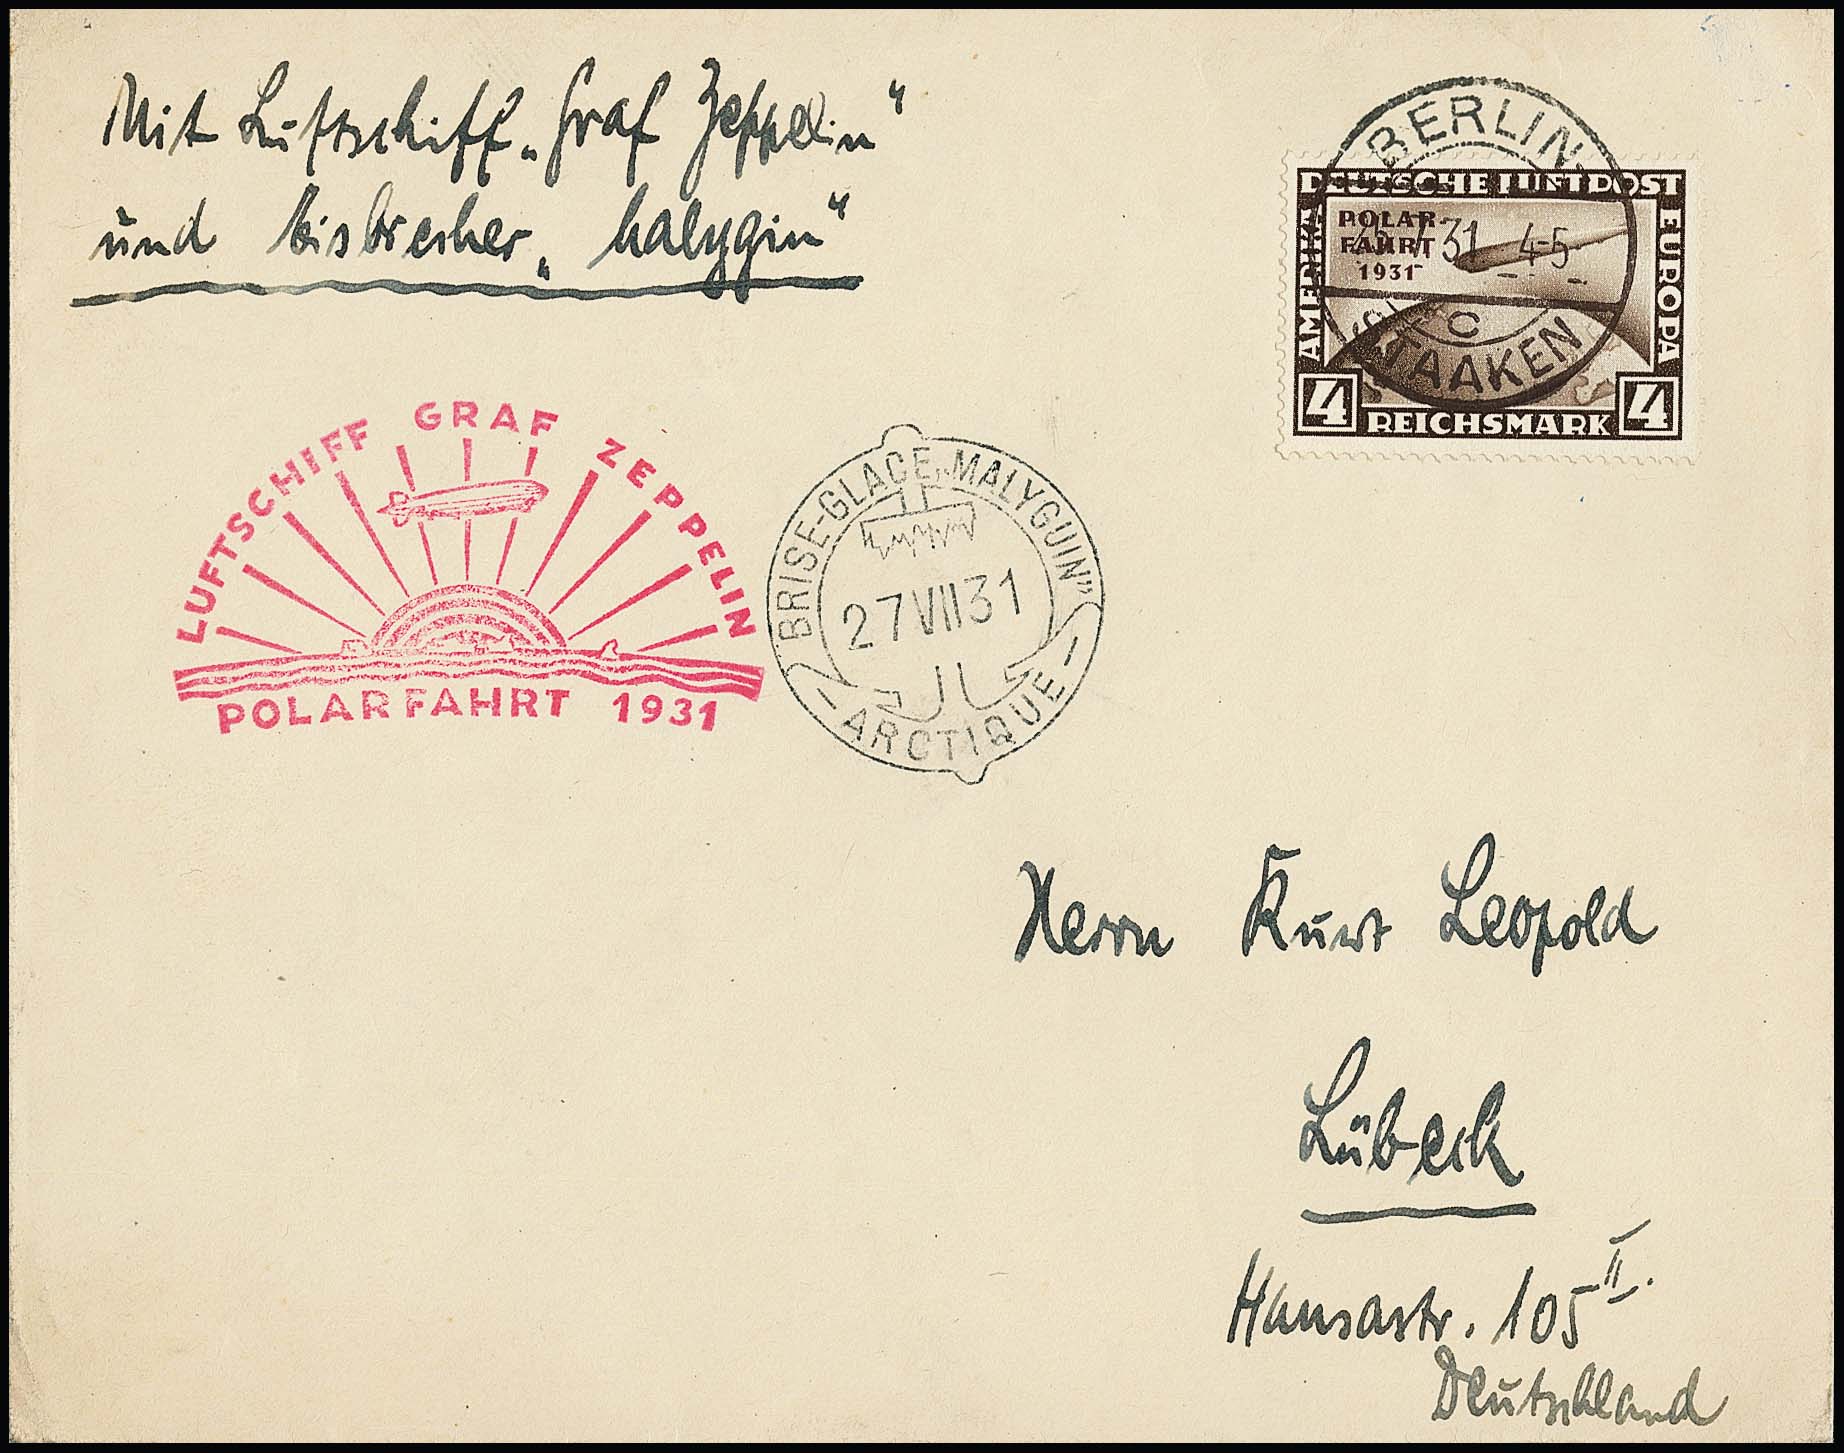 Mit Luftschiff „Graf Zeppelin“
und Eisbrecher „Malygin“
BERLIN
STAAKEN
C
31 4-5
DEUTSCHE LUFTPOST
AMERIKA
EUROPA
POLAR-
FAHRT
1931
4 REICHSMARK 4
LUFTSCHIFF GRAF ZEPPELIN
POLARFAHRT 1931
BRISE-GLACE „MALYGUIN”
27 VII 31
— ARCTIQUE —
Herrn Kurt Leopold
Lübeck
Hansastr. 105 II.
Deutschland